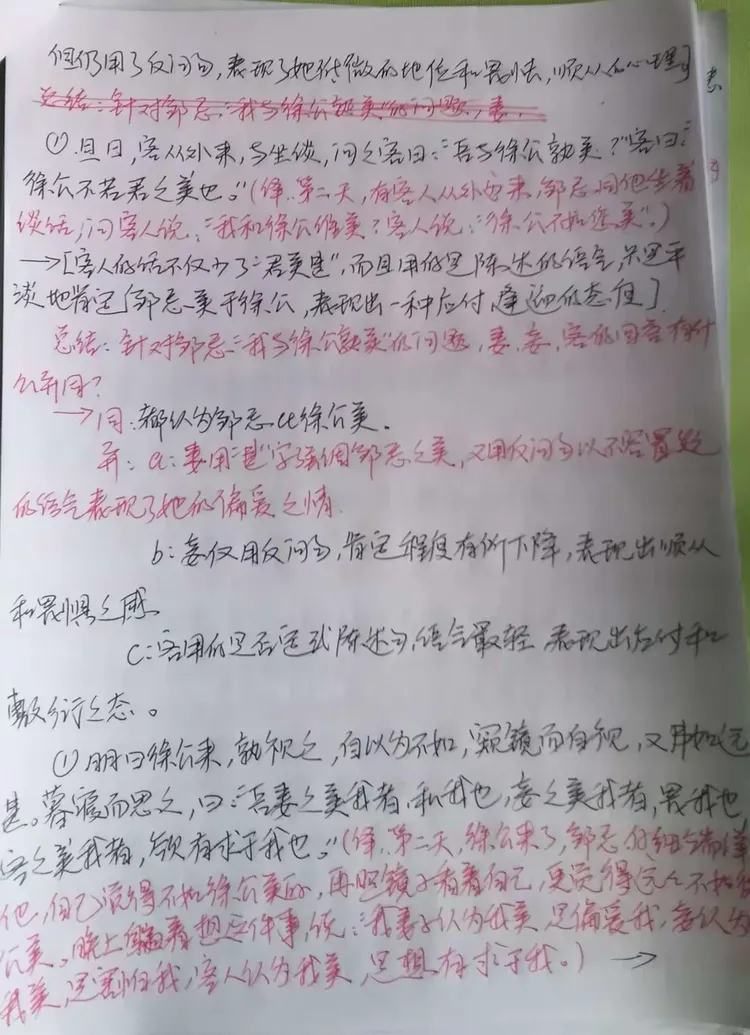 但仍用了反问句，表现了她低微的地位和畏怯，顺从的心理]
总结：针对邹忌“我与徐公孰美”的问题，妻、
①.旦日，客从外来，与坐谈，问之客曰：“吾与徐公孰美？”客曰：“
徐公不若君之美也。”(译：第二天，有客人从外边来，邹忌同他坐着
谈话，问客人说：“我和徐公谁美？客人说：“徐公不如您美”。)
→[客人的话不仅少了“君美甚”，而且用的是陈述的语言，只是平
谈地肯定了邹忌美于徐公，表现出一种应付、逢迎的态度]
总结：针对邹忌“我与徐公孰美”的问题，妻、妾、客的回答有什
么异同？
→同：都认为邹忌比徐公美。
异：a：妻用“甚”字强调邹忌之美，又用反问句以不容置疑
的语气表现了她的偏爱之情
b：妾仅用反问句，肯定程度有所下降，表现出顺从
和畏惧之感
C：客用的是否定式陈述句，语气最轻，表现出应付和
敷衍之态。
①明日徐公来，孰视之，自以为不如，窥镜而自视，又弗如远
甚。暮寝而思之，曰：“吾妻之美我者，私我也，妾之美我者，畏我也，
客之美我者，欲有求于我也。”(译：第二天，徐公来了，邹忌仔细端详
他，自己觉得不如徐公美的，再照镜子看看自己，更觉得远远不如徐
公美。晚上躺着想这件事，说：“我妻子认为我美，是偏爱我，妾认为
我美，是害怕我，客人认为我美，是想有求于我。) →